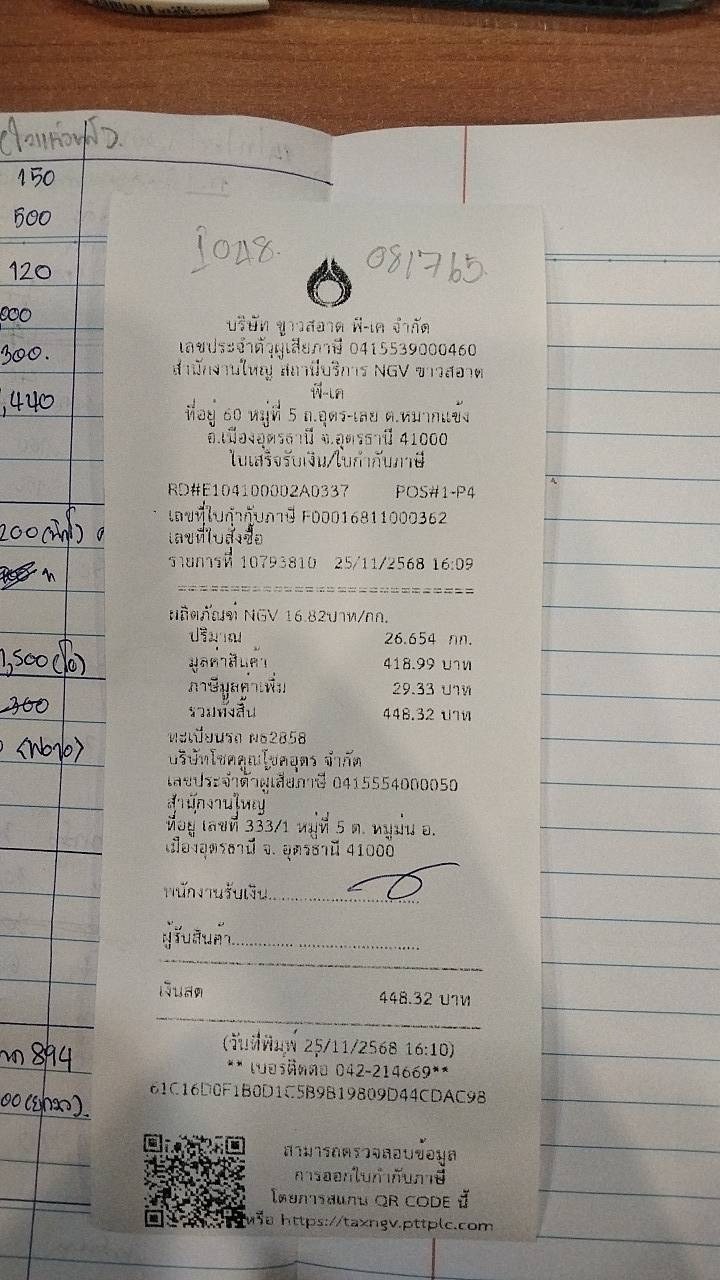 150
500
120
000
300.
,440
200
1,500
300
894
1048.
081765
บริษัท ขาวสอาด พี-เค จำกัด
เลขประจำตัวผู้เสียภาษี 0415539000460
สำนักงานใหญ่ สถานีบริการ NGV ขาวสอาด
พี-เค
ที่อยู่ 60 หมู่ที่ 5 ถ.อุดร-เลย ต.หมากแข้ง
อ.เมืองอุดรธานี จ.อุดรธานี 41000
ใบเสร็จรับเงิน/ใบกำกับภาษี
RD#E104100002A0337 POS#1-P4
เลขที่ใบกำกับภาษี F00016811000362
เลขที่ใบสั่งซื้อ
รายการที่ 10793810 25/11/2568 16:09
ผลิตภัณฑ์ NGV 16.82บาท/กก.
ปริมาณ 26.654 กก.
มูลค่าสินค้า 418.99 บาท
ภาษีมูลค่าเพิ่ม 29.33 บาท
รวมทั้งสิ้น 448.32 บาท
ทะเบียนรถ ผข2858
บริษัทโชคคูณโชคอุดร จำกัด
เลขประจำตัวผู้เสียภาษี 0415554000050
สำนักงานใหญ่
ที่อยู่ เลขที่ 333/1 หมู่ที่ 5 ต. หมูม่น อ.
เมืองอุดรธานี จ. อุดรธานี 41000
พนักงานรับเงิน
ผู้รับสินค้า
เงินสด 448.32 บาท
(วันที่พิมพ์ 25/11/2568 16:10)
** เบอร์ติดต่อ 042-214669**
61C16D0F1B0D1C5B9B19809D44CDAC98
สามารถตรวจสอบข้อมูล
การออกใบกำกับภาษี
โดยการสแกน QR CODE นี้
หรือ https://taxngv.pttplc.com